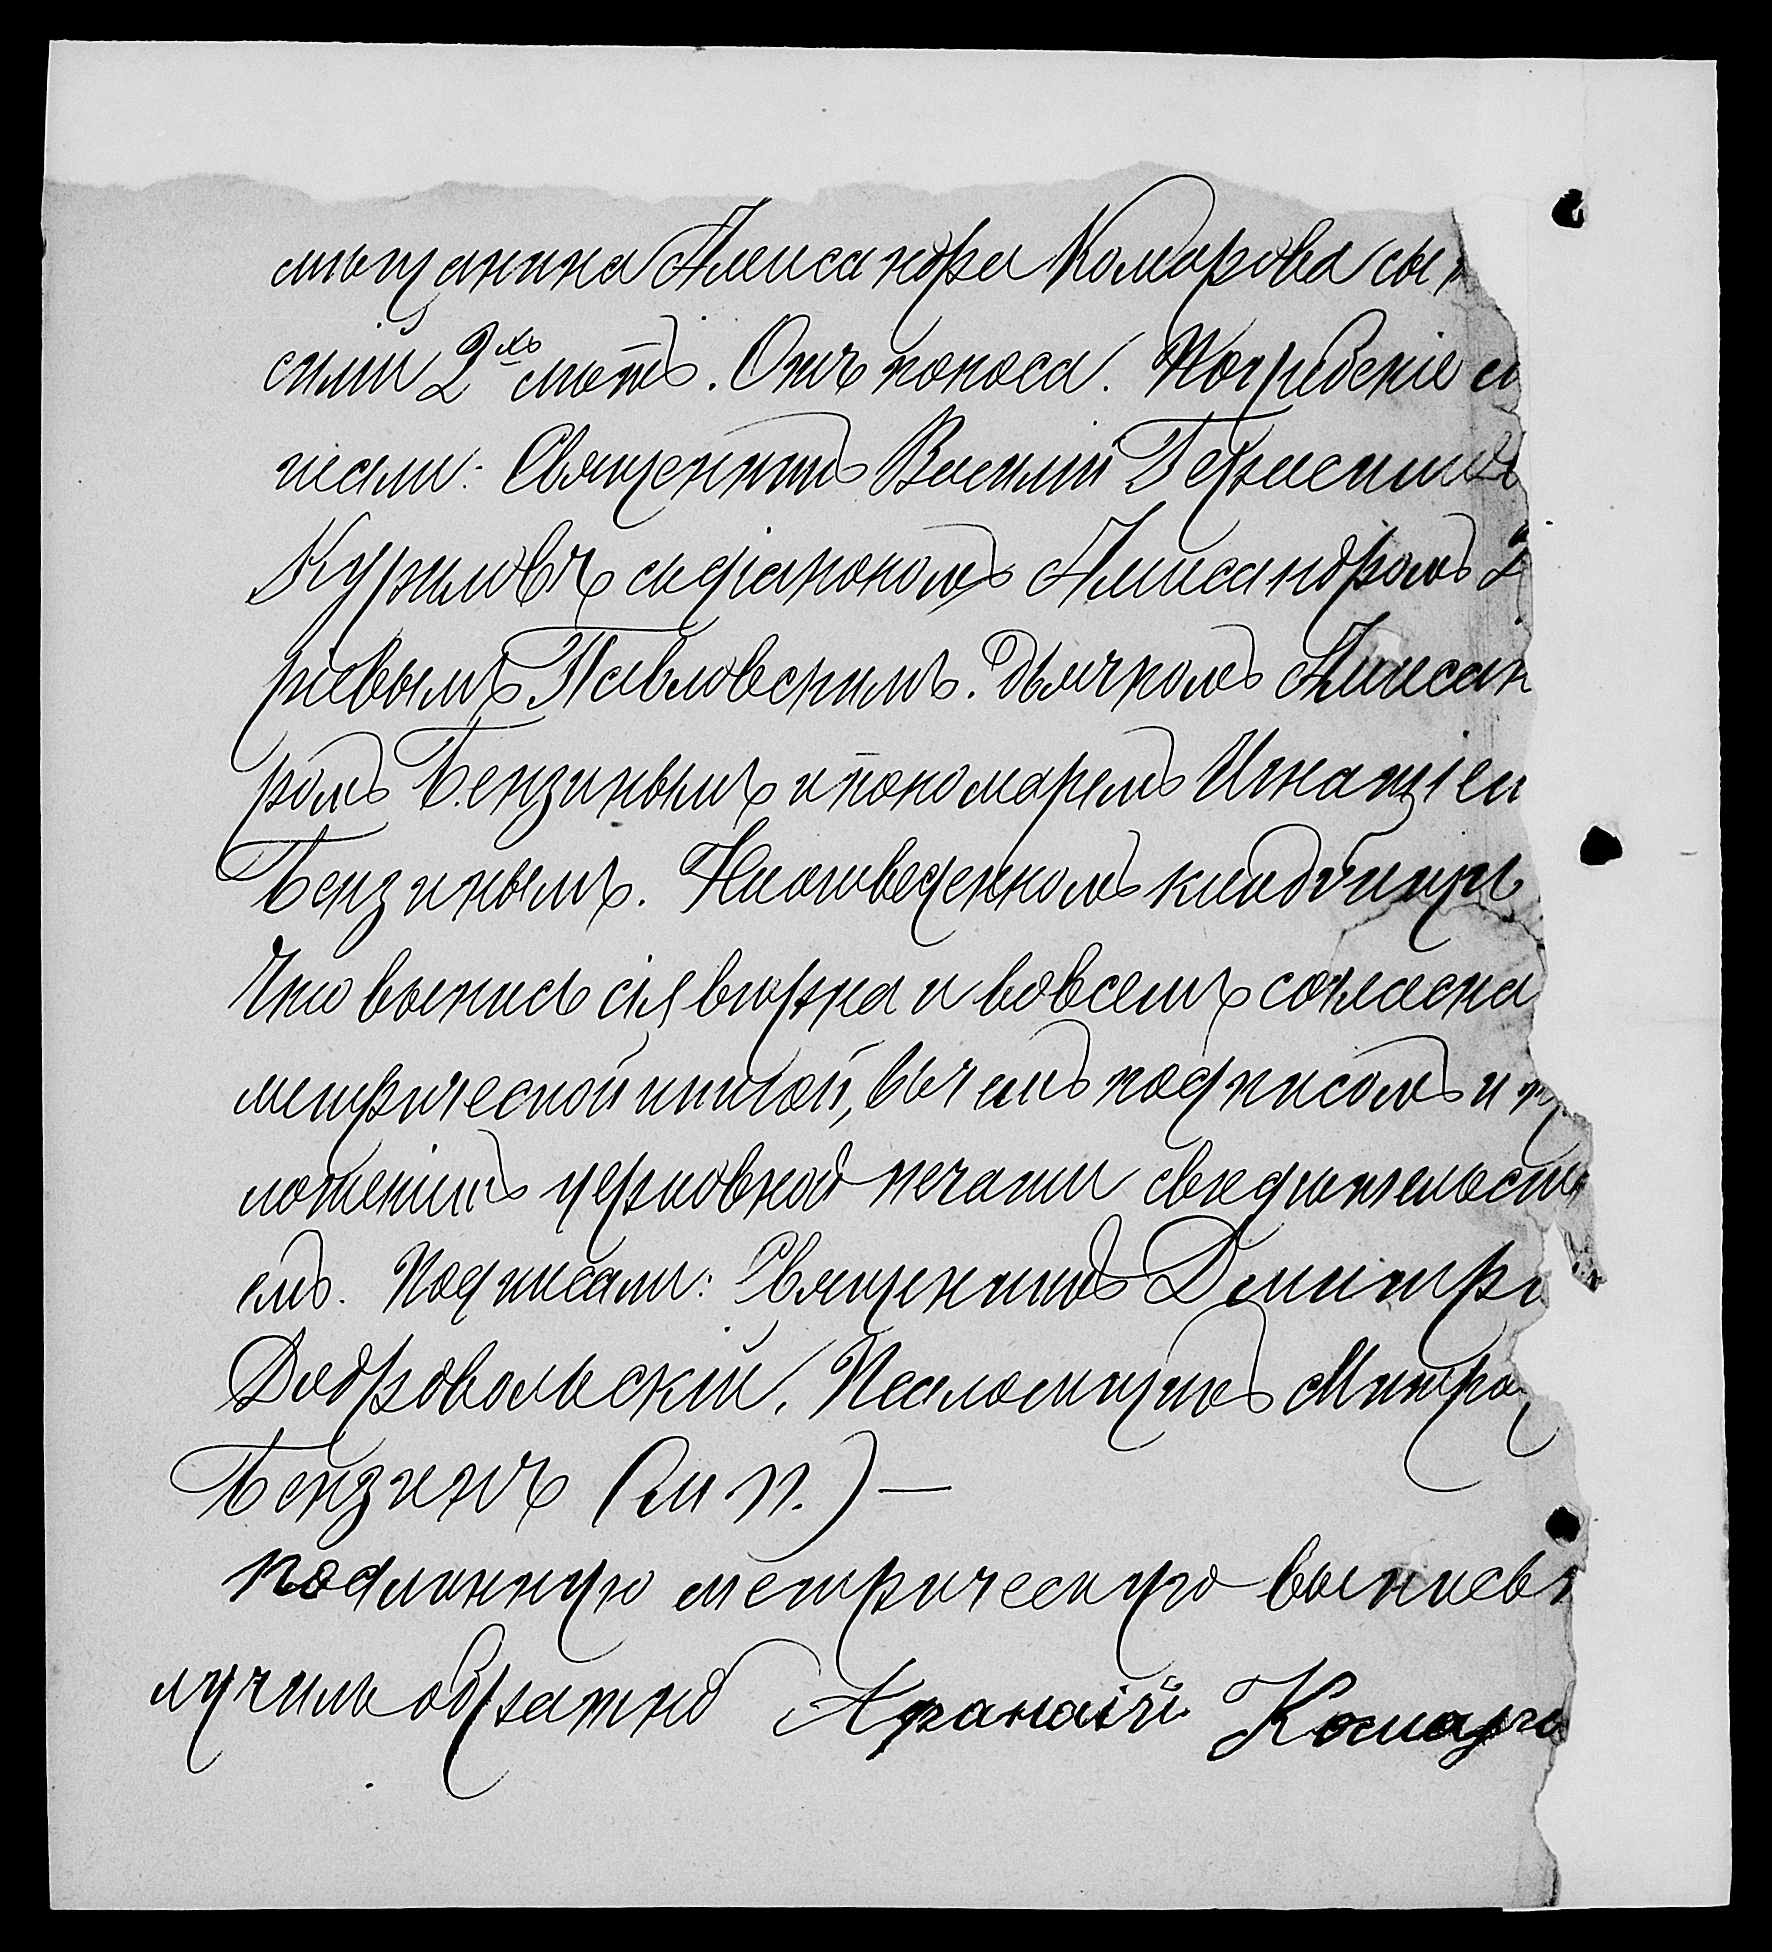 мѣщанина Александра Комарова сын
силій 2хъ лѣтъ. Отъ поноса. Погребеніе с
шали: Священникъ Василій Герасимовъ
Куриловъ съ діакономъ Александромъ
ріевымъ Павловскимъ. Дьячкомъ Алексан
ромъ Бензинымъ и пономаремъ Игнатіем
Бензинымъ. На отведенномъ кладбищѣ
Что выпись сія вѣрна и во всемъ согласна
метрической книгой, въ чемъ подписомъ и пр
ложеніемъ церковной печати свидѣтельств
емъ. Подписали: Священникъ Димитрі
Добровольскій. Псаломщикъ Митро
Бензинъ (м п.) —
подлинную метрическую выпись
лучилъ обратно Афанасій Комаро